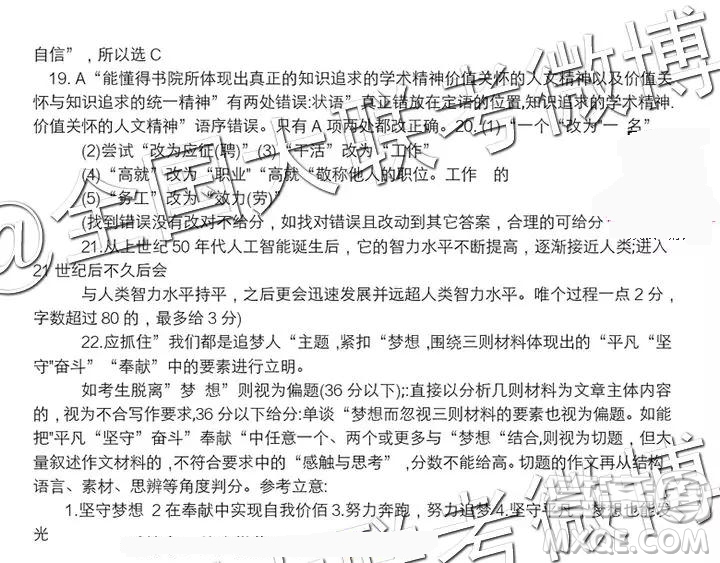 自信”，所以选C
19. A“能懂得书院所体现出真正的知识追求的学术精神价值关怀的人文精神以及价值关
怀与知识追求的统一精神”有两处错误:状语”真正错放在定语的位置,知识追求的学术精神.
价值关怀的人文精神”语序错误。只有A项两处都改正确。20. (1)“一个“改为“一 名”
(2)尝试“改为应征(聘)” (3)“干活”改为“工作”
(4)“高就”改为“职业"“高就“敬称他人的职位。工作 的
(5)“务工”改为“效力(劳)”
(找到错误没有改对不给分，如找对错误且改动到其它答案，合理的可给分
21.从上世纪50年代人工智能诞生后，它的智力水平不断提高，逐渐接近人类;进入
21世纪后不久后会
与人类智力水平持平，之后更会迅速发展并远超人类智力水平。唯个过程一点2分，
字数超过80的，最多给3分)
22.应抓住”我们都是追梦人“主题,紧扣“梦想”,围绕三则材料体现出的“平凡“坚
守"奋斗”“奉献”中的要素进行立明。
如考生脱离”梦 想”则视为偏题(36分以下);:直接以分析几则材料为文章主体内容
的，视为不合写作要求,36分以下给分:单谈“梦想而忽视三则材料的要素也视为偏题。如能
把"平凡“坚守”奋斗”奉献“中任意一个、两个或更多与“梦想“结合,则视为切题，但大
量叙述作文材料的,不符合要求中的“感触与思考”,分数不能给高。切题的作文再从结构、
语言、素材、思辨等角度判分。参考立意:
1.坚守梦想 2在奉献中实现自我价值3.努力奔跑，努力追梦4.坚守平凡，梦想也能发
光
@全国大联考微博
大联考微博